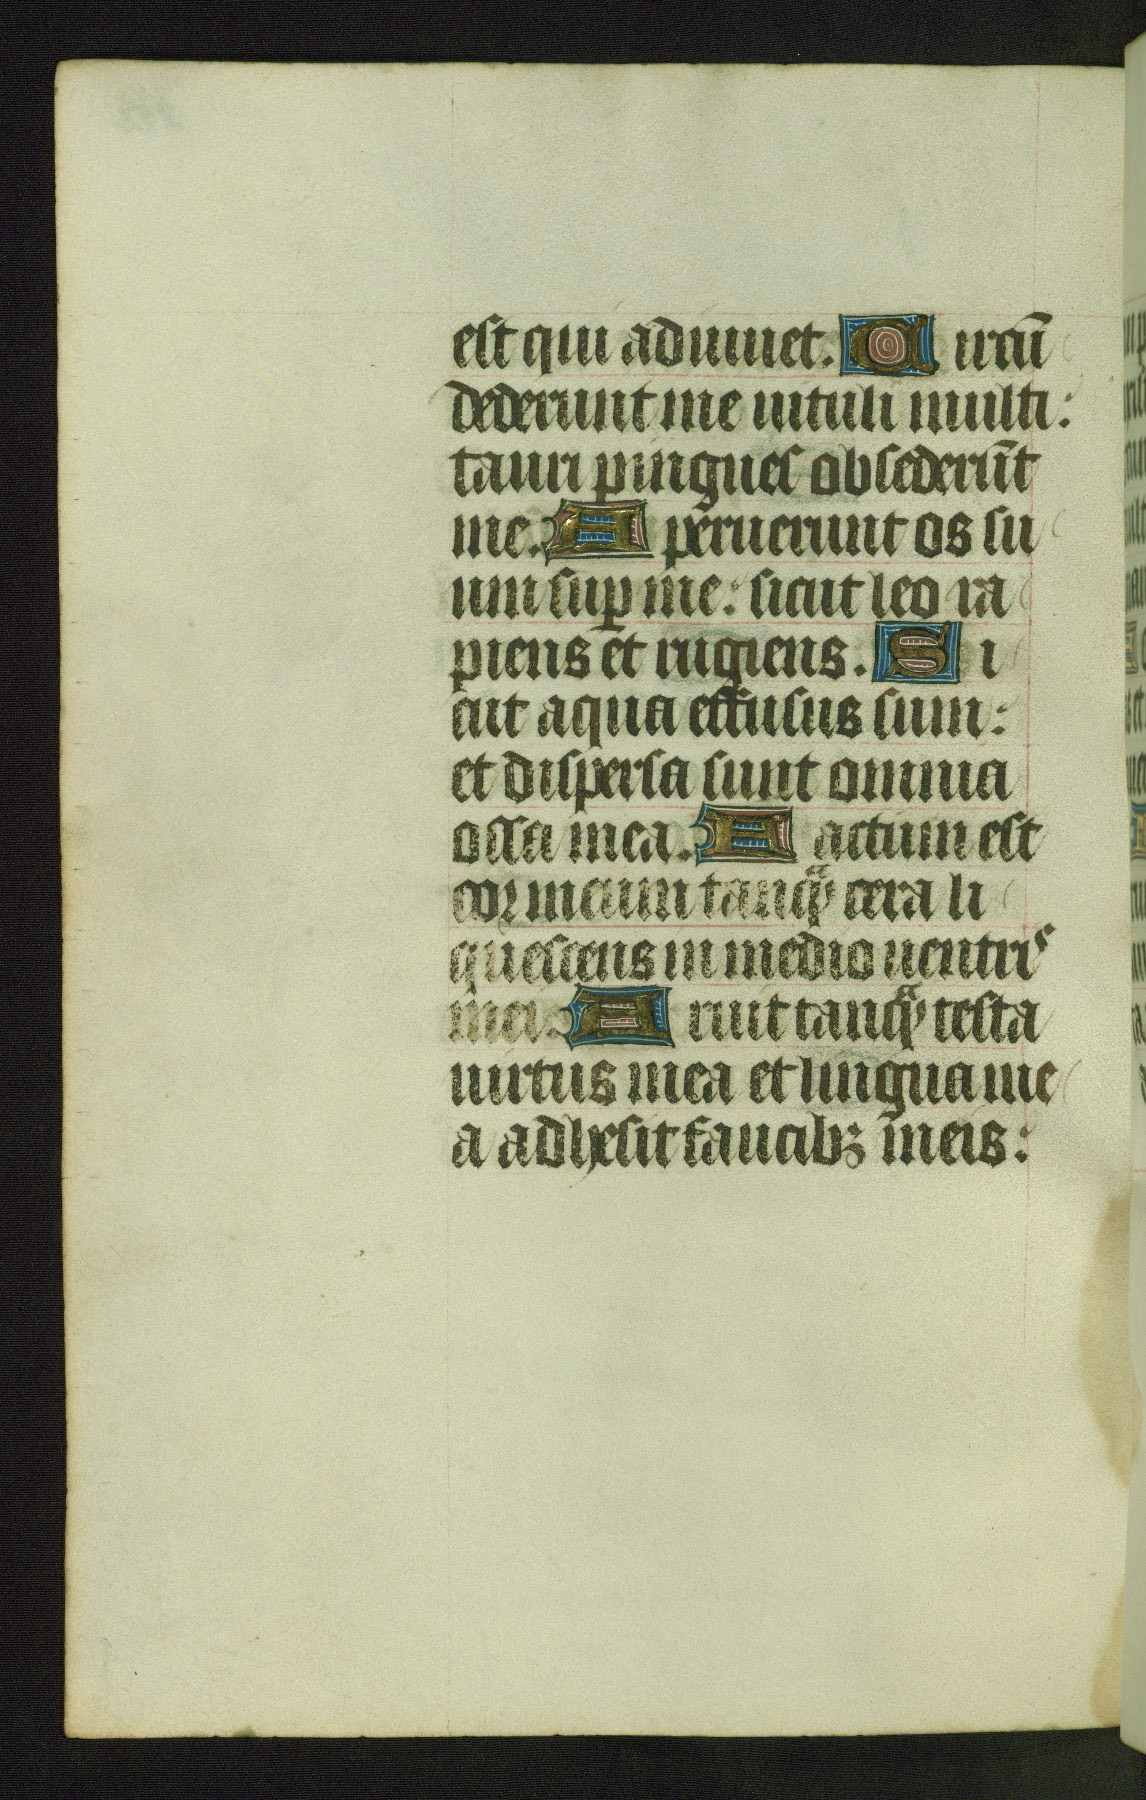 est qui adiuuet. Circū
dederunt me uituli multi:
tauri pingues obsederūt
me. Aperuerunt os su
um sup me: sicut leo ra
piens et rugiens. Si
cut aqua effusus sum:
et dispersa sunt omnia
ossa mea. Factum est
cor meum tanqᵃ cera li
quescens in medio uentris
mei. Aruit tanqᵃ testa
uirtus mea et lingua me
a adhesit faucibꝫ meis: